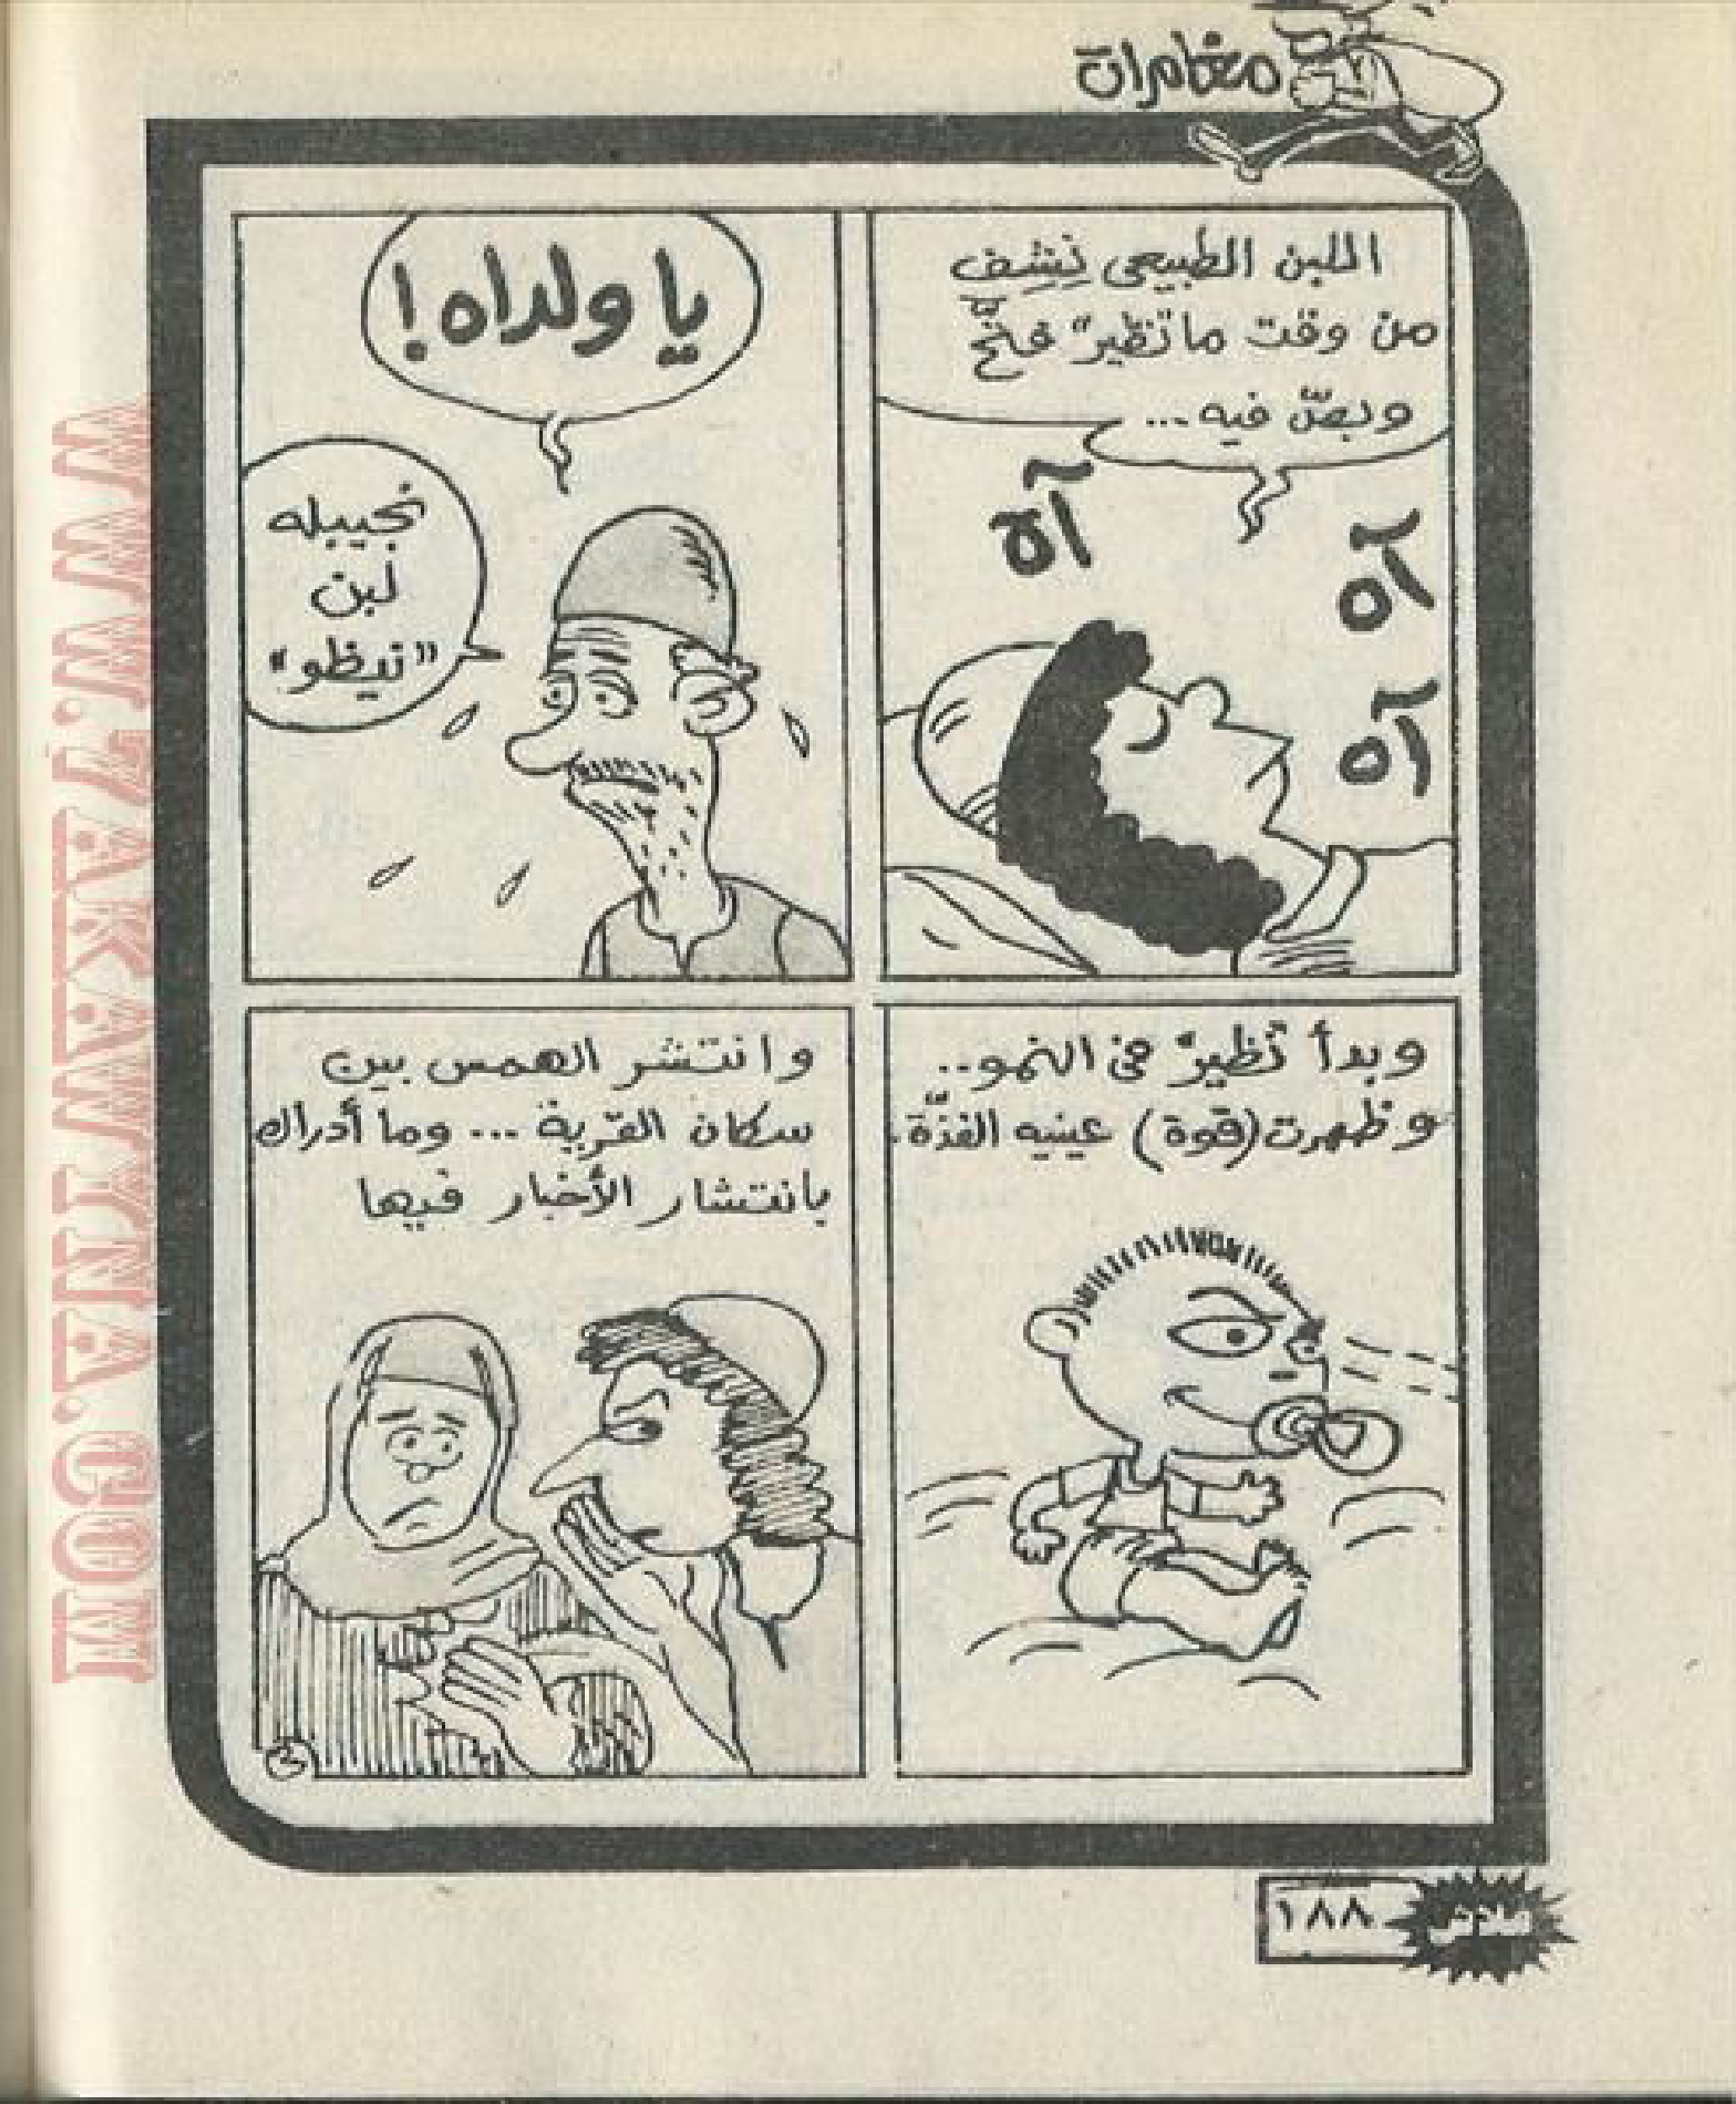 مغامرات
اللبن الطبيعى نِشِف
من وقت ما تظير فتّح
وبصّ فيه...
آه
آه
آه
يا ولداه!
نجيبله
لبن
"نيظو"
وبدأ تظير فى النمو..
وظهرت (قوة) عينيه الفذّة.
وانتشر الهمس بين
سكان القرية... وما أدراك
بانتشار الأخبار فيها
١٨٨
WWW.TAKAWTNA.COM